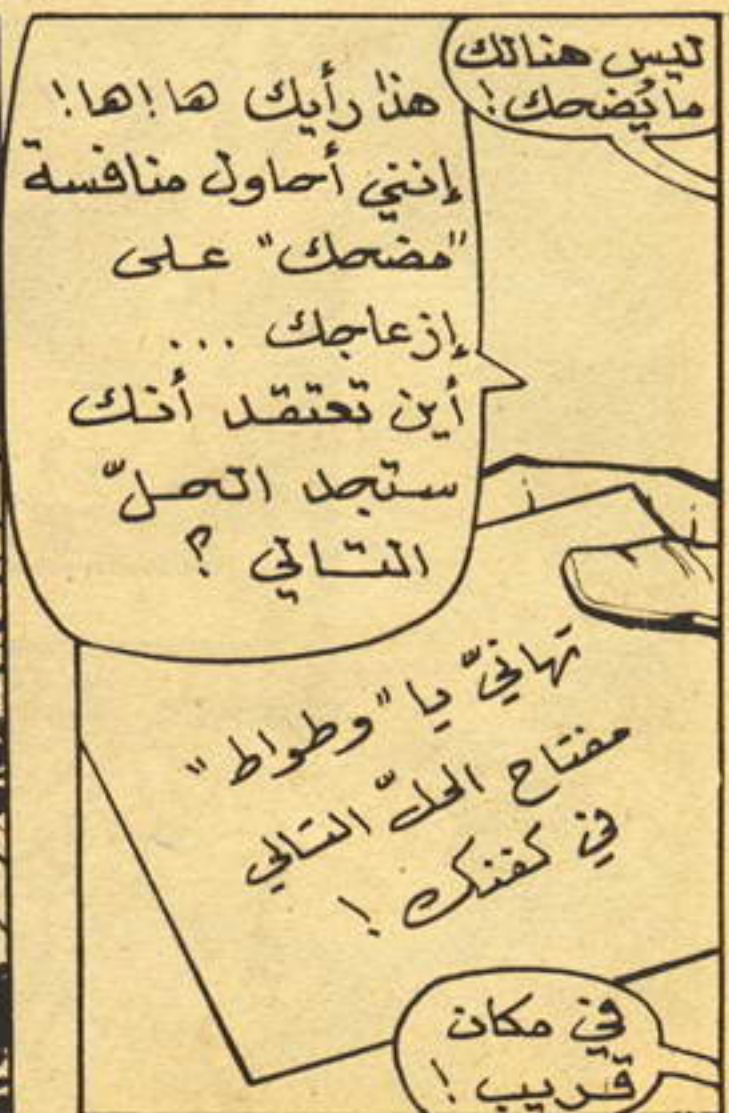 ليس هنالك
ما يُضحك!
هذا رأيك ها! ها!
إنني أحاول منافسة
"مضحك" على
إزعاجك ...
أين تعتقد أنك
ستجد الحلّ
التالي ؟
تهانيّ يا "وطواط"
مفتاح الحلّ التالي
في كفنك !
في مكان
قريب !